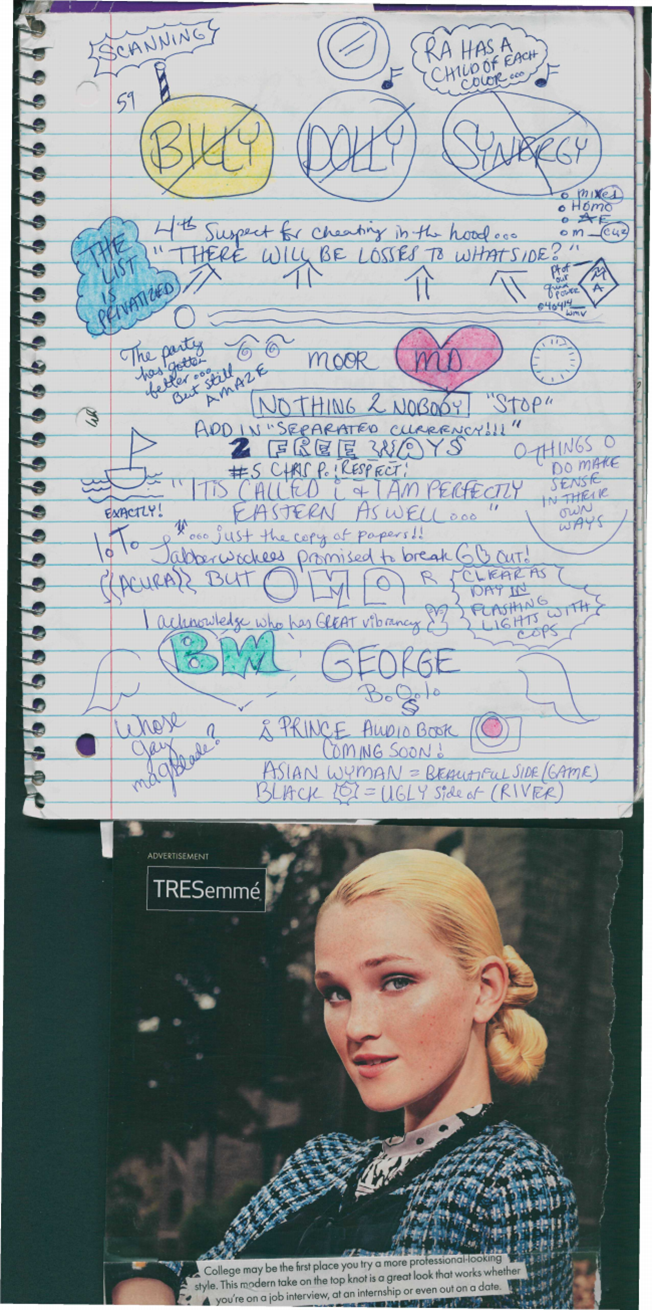 SCANNING
RA HAS A
CHILD OF EACH
COLOR...
59
BILLY
DOLLY
SYNERGY
mixed
HOMO
AE
m_cuz
4th Suspect for cheating in the hood...
"THERE WILL BE LOSSES TO WHAT SIDE?"
THE
LIST
IS
PRIVATIZED
M
A
040414
wmv
The party
has gotten
better...
But still
AMAZE
MOOR
MD
NOTHING 2 NOBODY "STOP"
ADD IN "SEPARATED CURRENCY!!!"
2 FREE WAYS
#5 CHRIS P. RESPECT!
THINGS
DO MAKE
SENSE
IN THEIR
OWN
WAYS
"IT'S CALLED i & I AM PERFECTLY
EASTERN AS WELL..."
EXACTLY!
I.O.T.
...just the copy of papers!!
Jabberwockees promised to break GB OUT!
{{ACURA}} BUT OMAR
CLEAR AS
DAY IN
FLASHING
LIGHTS WITH
COPS
I acknowledge who has GREAT vibrancy
BM
GEORGE
B.O.Q.lo
Whose
gay
mag blade?
i PRINCE AUDIO BOOK
COMING SOON!
ASIAN WYMAN = BEAUTIFUL SIDE (GAME)
BLACK = UGLY side of (RIVER)
ADVERTISEMENT
TRESemmé
College may be the first place you try a more professional-looking
style. This modern take on the top knot is a great look that works whether
you're on a job interview, at an internship or even out on a date.